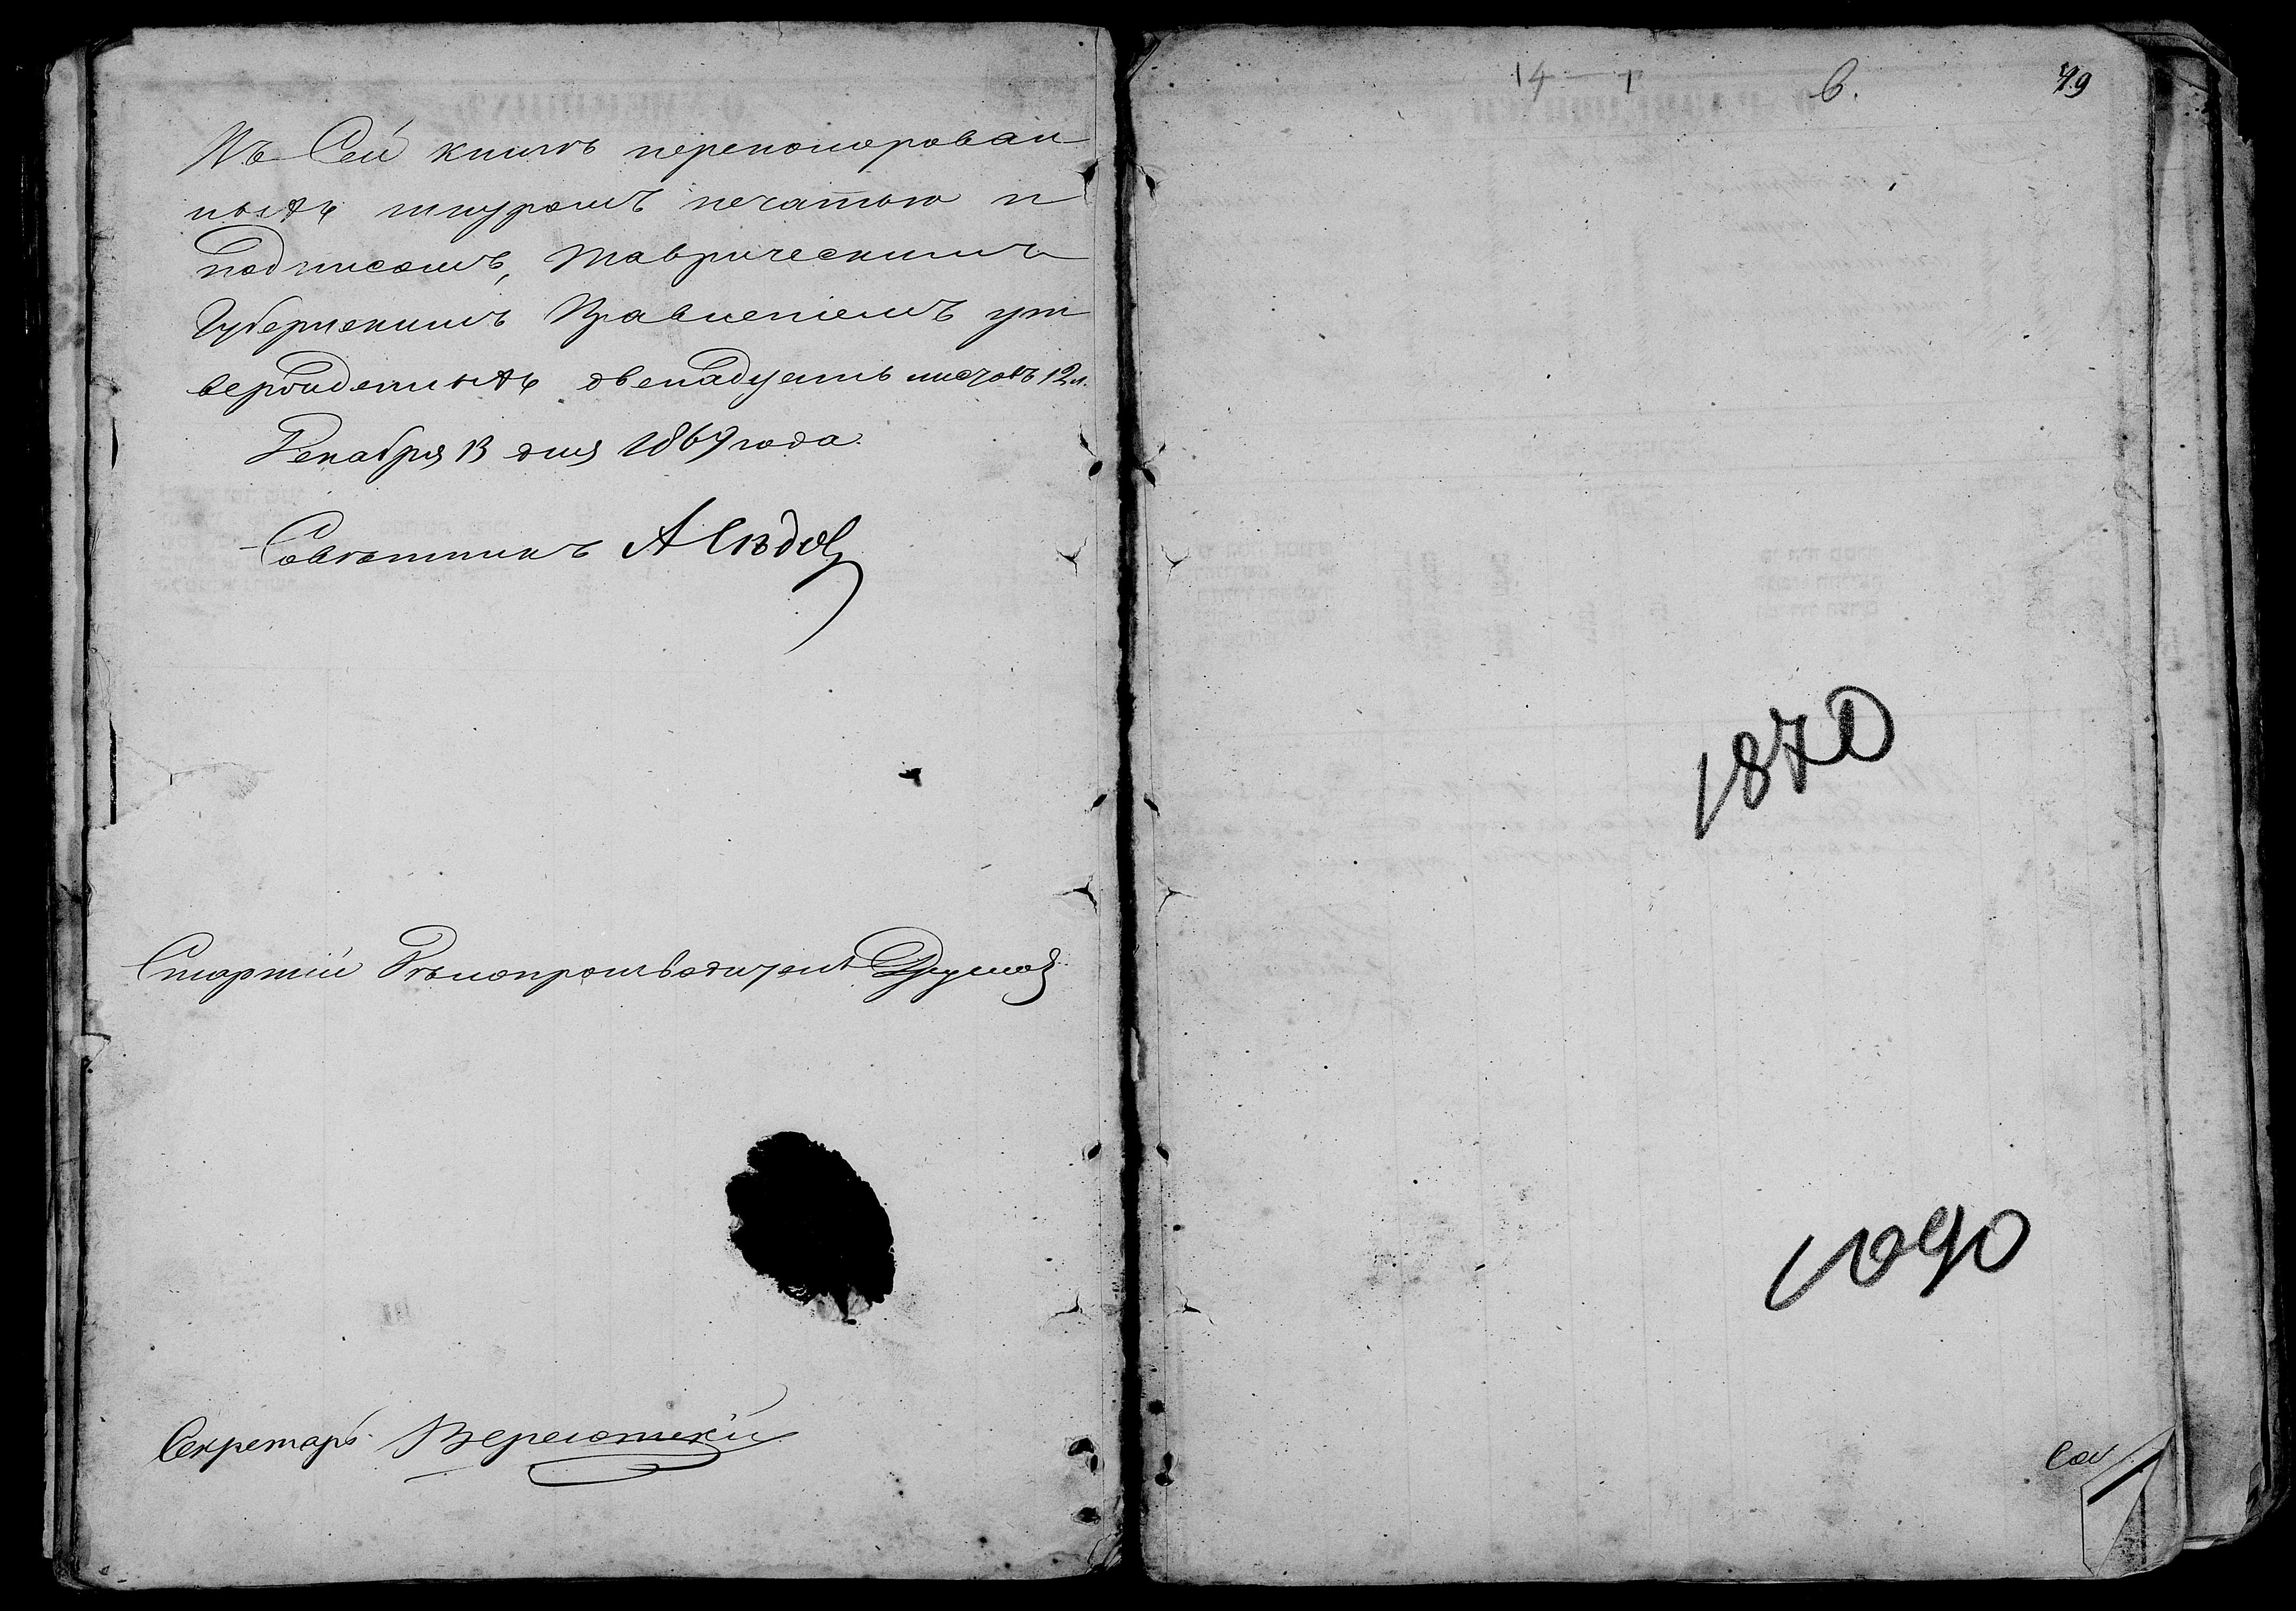 Въ Сей книгѣ перекомерован
ныхъ шнуромъ печатью и
подписомъ, Таврическимъ
Губернскимъ Правленіемъ ут
вержденныхъ двенадцать листовъ 12 л.
Декабря 13 дня 1869 года.
Совѣтникъ А
Старшій Дѣлопроизводитель
Секретарь
14 — 1
6.
49
1870
1090
Сов